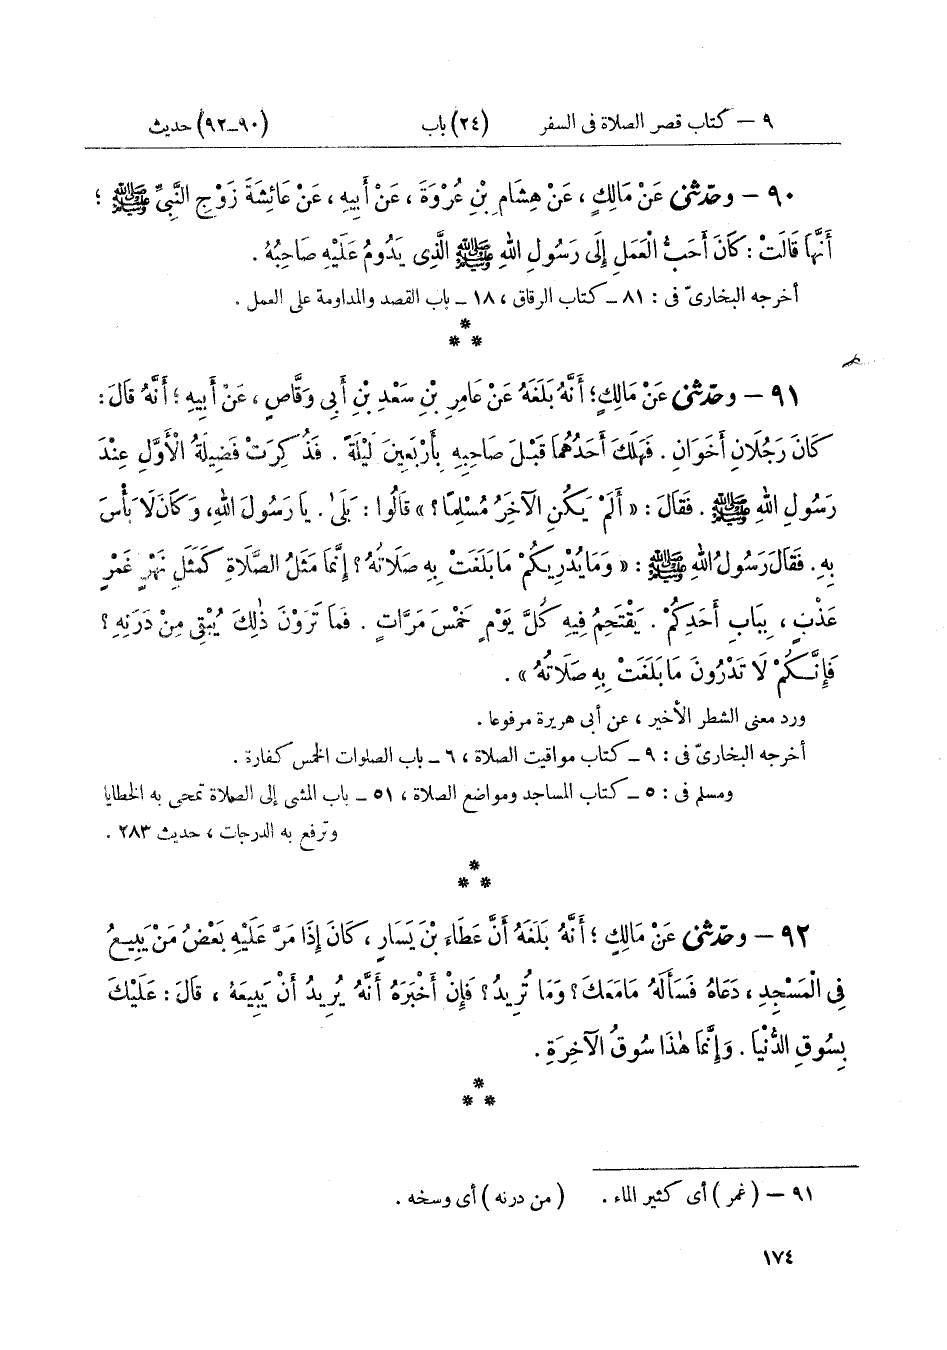 ٩ — كتاب قصر الصلاة فى السفر (٢٤) باب (٩٠ـ٩٢) حديث
٩٠ — وحدّثنى عَنْ مَالِكٍ ، عَنْ هِشَامِ بْنِ عُرْوَةَ ، عَنْ أَبِيهِ ، عَنْ عَائِشَةَ زَوْجِ النَّبِىِّ ﷺ ؛
أَنَّهَا قَالَتْ : كَانَ أَحَبُّ الْعَمَلِ إِلَى رَسُولِ اللهِ ﷺ الَّذِى يَدُومُ عَلَيْهِ صَاحِبُهُ .
أخرجه البخارىّ فى : ٨١ ـ كتاب الرقاق ، ١٨ ـ باب القصد والمداومة على العمل .
*
* *
٩١ — وحدّثنى عَنْ مَالِكٍ؛ أَنَّهُ بَلَغَهُ عَنْ عَامِرِ بْنِ سَعْدِ بْنِ أَبِى وَقَّاصٍ ، عَنْ أَبِيهِ ؛ أَنَّهُ قَالَ :
كَانَ رَجُلَانِ أَخَوَانِ . فَهَلَكَ أَحَدُهُمَا قَبْلَ صَاحِبِهِ بِأَرْبَعِينَ لَيْلَةً . فَذُكِرَتْ فَضِيلَةُ الْأَوَّلِ عِنْدَ
رَسُولِ اللهِ ﷺ . فَقَالَ : « أَلَمْ يَكُنِ الْآخِرُ مُسْلِمًا ؟ » قَالُوا : بَلَىٰ . يَا رَسُولَ اللهِ، وَكَانَ لَا بَأْسَ
بِهِ . فَقَالَ رَسُولُ اللهِ ﷺ : « وَمَا يُدْرِيكُمْ مَا بَلَغَتْ بِهِ صَلَاتُهُ ؟ إِنَّمَا مَثَلُ الصَّلَاةِ كَمَثَلِ نَهْرٍ غَمْرٍ
عَذْبٍ ، بِبَابِ أَحَدِكُمْ . يَقْتَحِمُ فِيهِ كُلَّ يَوْمٍ خَمْسَ مَرَّاتٍ . فَمَا تَرَوْنَ ذٰلِكَ يُبْقِى مِنْ دَرَنِهِ ؟
فَإِنَّكُمْ لَا تَدْرُونَ مَا بَلَغَتْ بِهِ صَلَاتُهُ » .
ورد معنى الشطر الأخير ، عن أبى هريرة مرفوعا .
أخرجه البخارىّ فى : ٩ ـ كتاب مواقيت الصلاة ، ٦ ـ باب الصلوات الخمس كفارة .
ومسلم فى : ٥ ـ كتاب المساجد ومواضع الصلاة ، ٥١ ـ باب المشى إلى الصلاة تمحى به الخطايا
وترفع به الدرجات ، حديث ٢٨٣ .
*
* *
٩٢ — وحدّثنى عَنْ مَالِكٍ ؛ أَنَّهُ بَلَغَهُ أَنَّ عَطَاءَ بْنَ يَسَارٍ ، كَانَ إِذَا مَرَّ عَلَيْهِ بَعْضُ مَنْ يَبِيعُ
فِى الْمَسْجِدِ ، دَعَاهُ فَسَأَلَهُ مَا مَعَكَ ؟ وَمَا تُرِيدُ ؟ فَإِنْ أَخْبَرَهُ أَنَّهُ يُرِيدُ أَنْ يَبِيعَهُ ، قَالَ : عَلَيْكَ
بِسُوقِ الدُّنْيَا . وَإِنَّمَا هٰذَا سُوقُ الْآخِرَةِ .
*
* *
٩١ — ( غمر ) أى كثير الماء . ( من درنه ) أى وسخه .
١٧٤